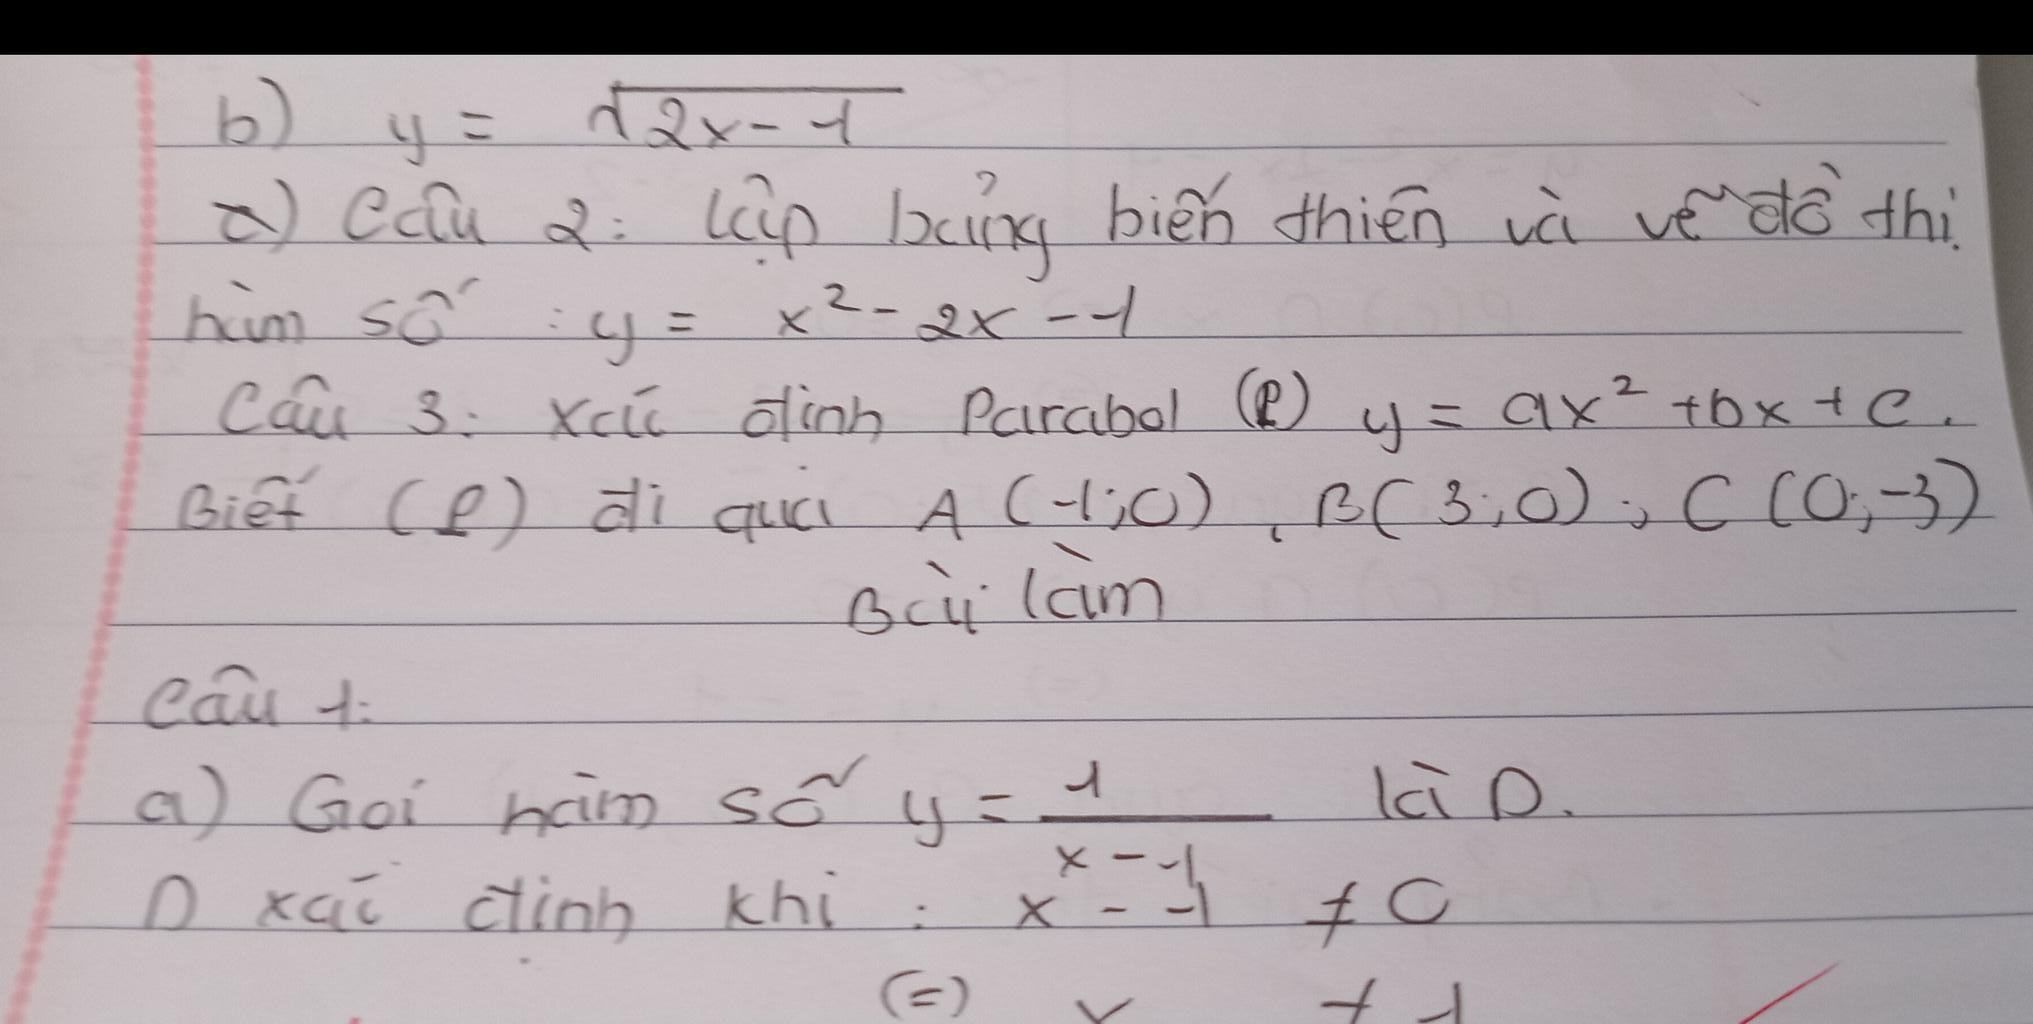 b) y = √2x-1
a) Câu 2: Lập bảng biến thiên và vẽ đồ thị
hàm số : y = x² - 2x - 1
Câu 3: xác định Parabol (P) y = ax² + bx + c.
Biết (P) đi qua A (-1; 0), B(3; 0); C (0; -3)
Bài làm
Câu 1:
a) Gọi hàm số y = 1/(x - 1) là D.
D xác định khi : x - 1 ≠ 0
(=) x ≠ 1